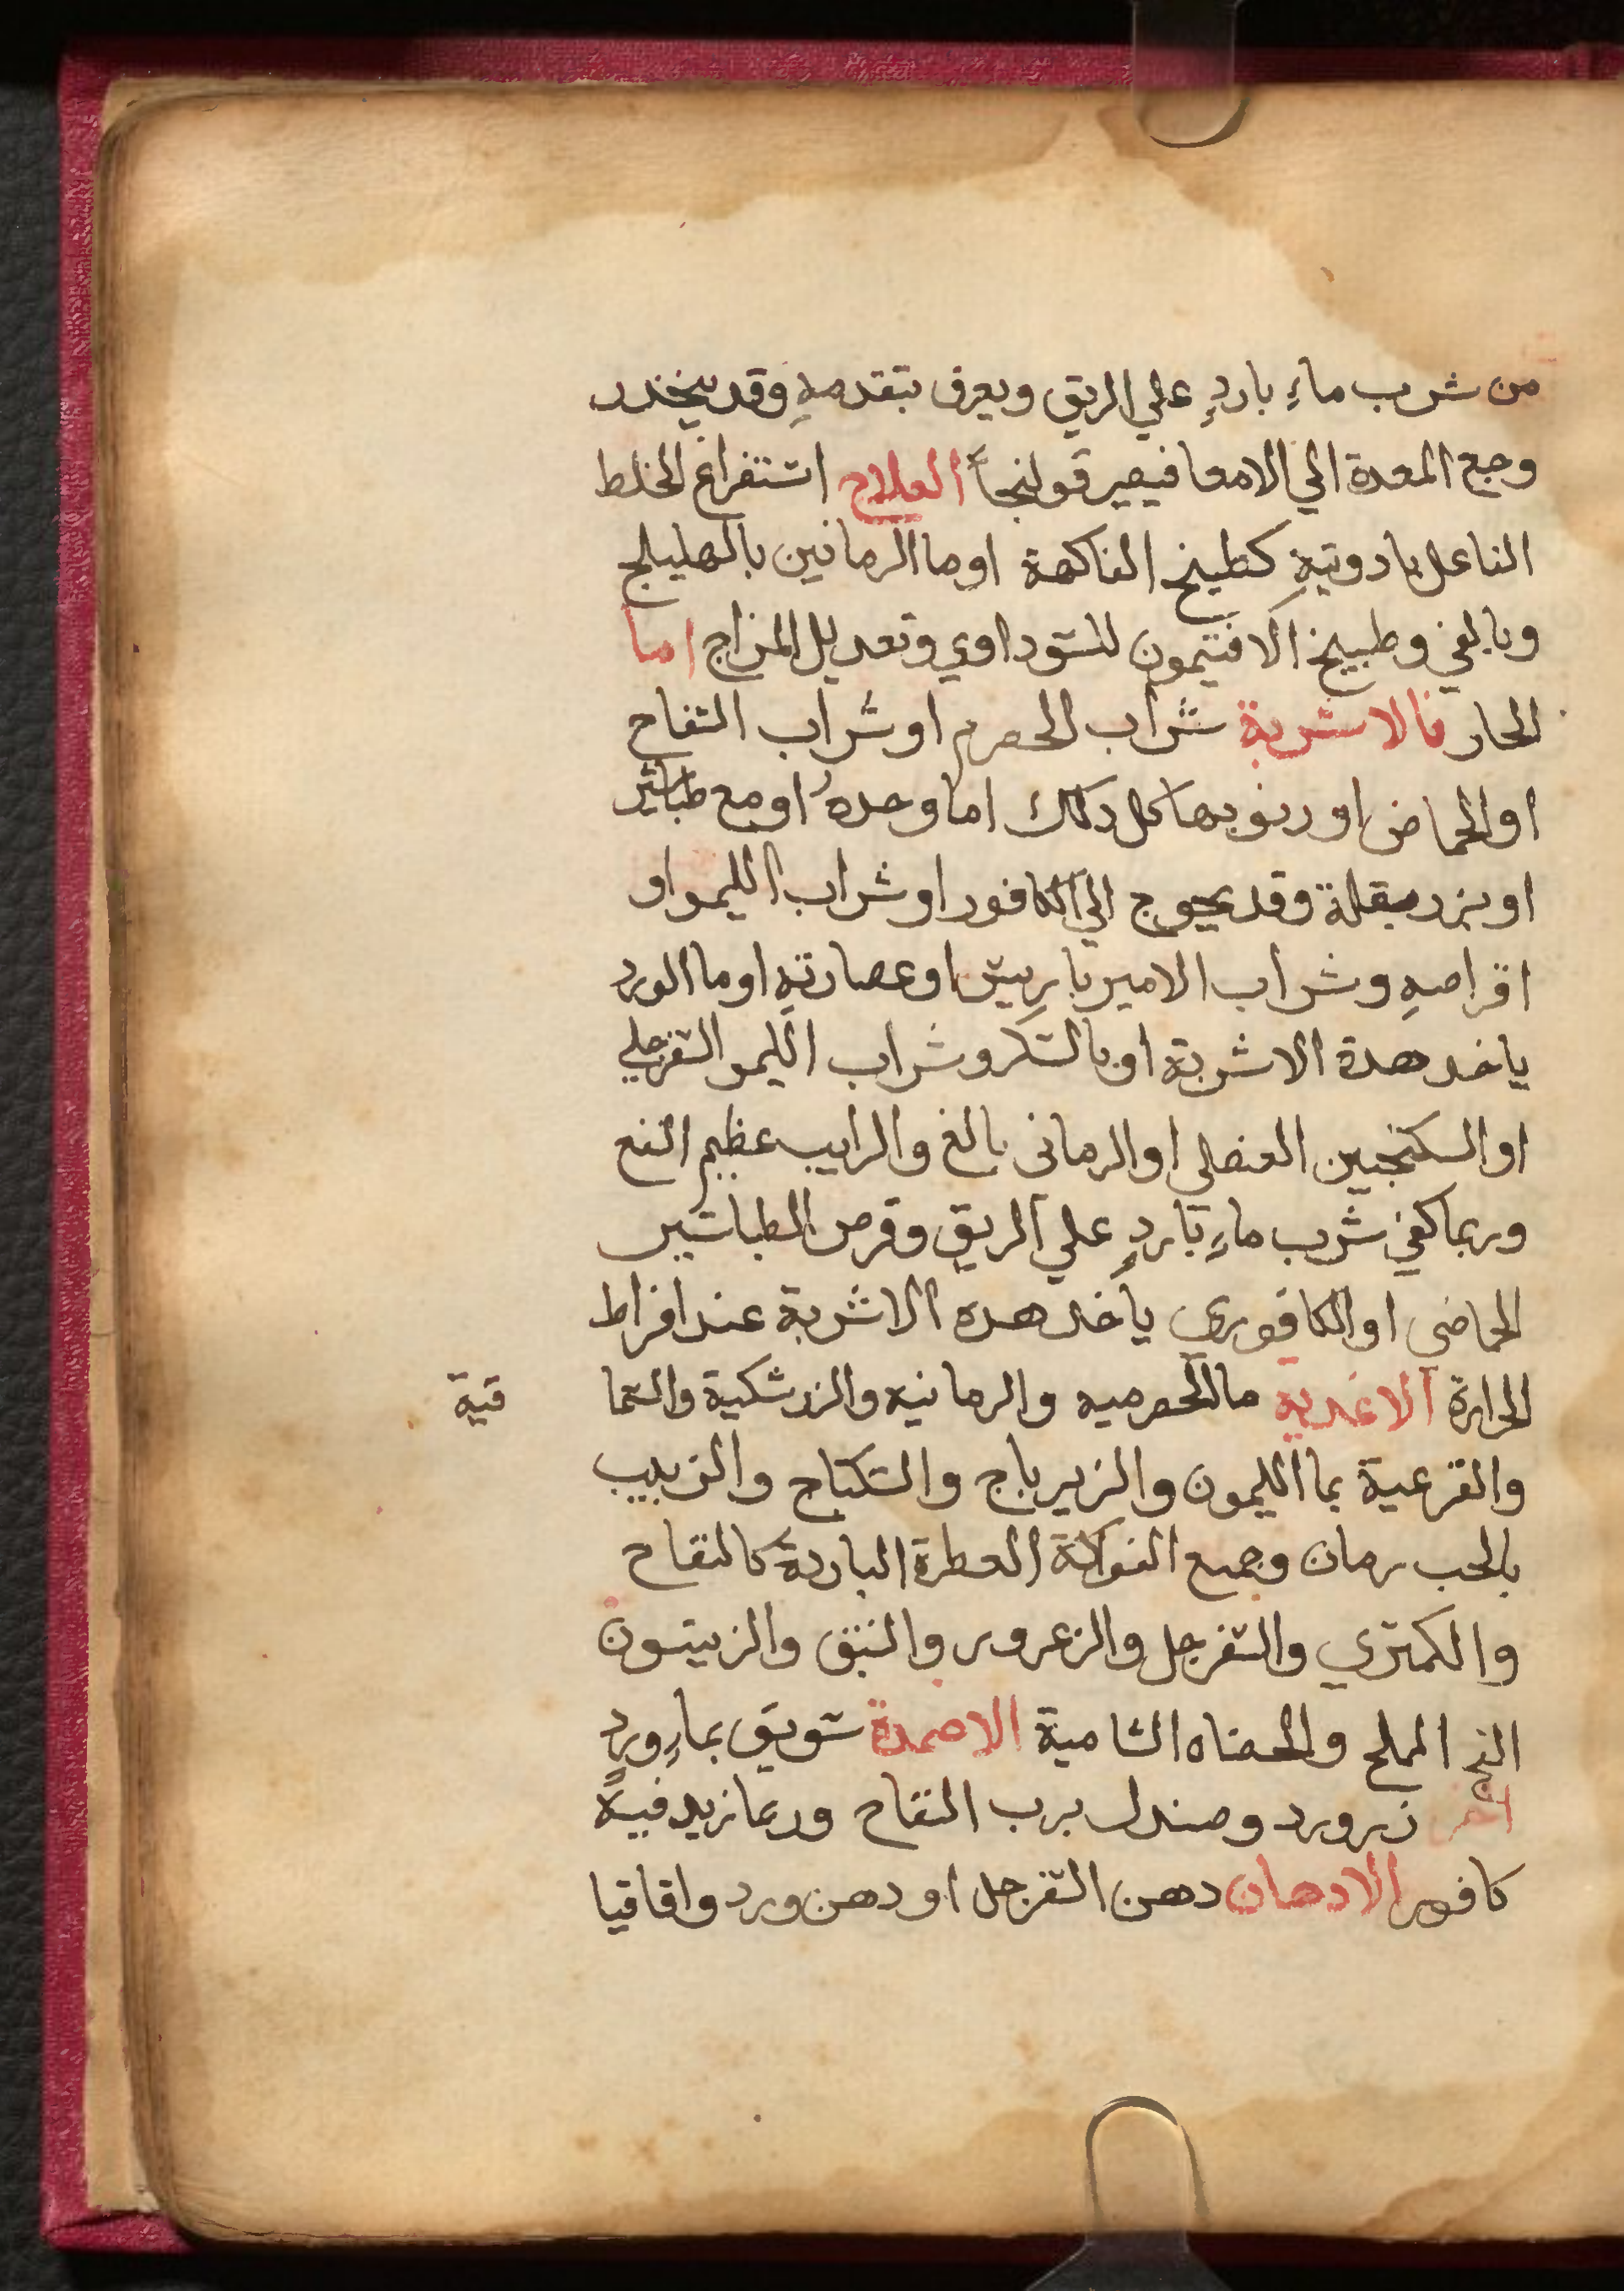 من شرب ماءٍ باردٍ علي الريق ويعرف بتقدمهِ وقد ينحدر
وجع المعدة الي الامعا فيصير قولنجاً العلاج استفراغ الخلط
الفاعل بادويتهِ كطبيخ الفاكهة اوما الرمانين بالهليلج
وبالقي وطبيخ الافتيمون للسوداوي وتعديل المزاج اما
الحار فالاشربة شراب الحصرم او شراب التفاح
او الحماض او ربوبها كل دلك اما وحدهُ او مع طباشير
او بزر بقلة وقد يحوج الي الكافور او شراب الليمو او
اقراصهِ وشراب الامير باريس او عصارتهِ اوما الورد
ياخد هدة الاشربة او بالسكر وشراب الليمو السفرجلي
او السكنجبين العنصلي او الرماني بالغ والرايب عظيم النفع
وربما كفي شرب ماءٍ باردٍ علي الريق وقرص الطباشير
الحماضي او الكافوري ياخد هده الاشربة عند افراط
الحرارة الاغدية مالحصرميه والرمانيه والزرشكية والسما قية
والقرعية بما الليمون والزيرباج والسكباج والزبيب
بالحب رمان وجميع الفواكة العطرة الباردة كالتفاح
والكمتري والسفرجل والزعرور والنبق والزيتون
الفج المملح والشامية الاضمدة سويق بماءِ وردٍ
اخر زرورد وصندل برب التفاح وربما زيد فيهِ
كافور الادهان دهن السفرجل او دهن ورد واقاقيا